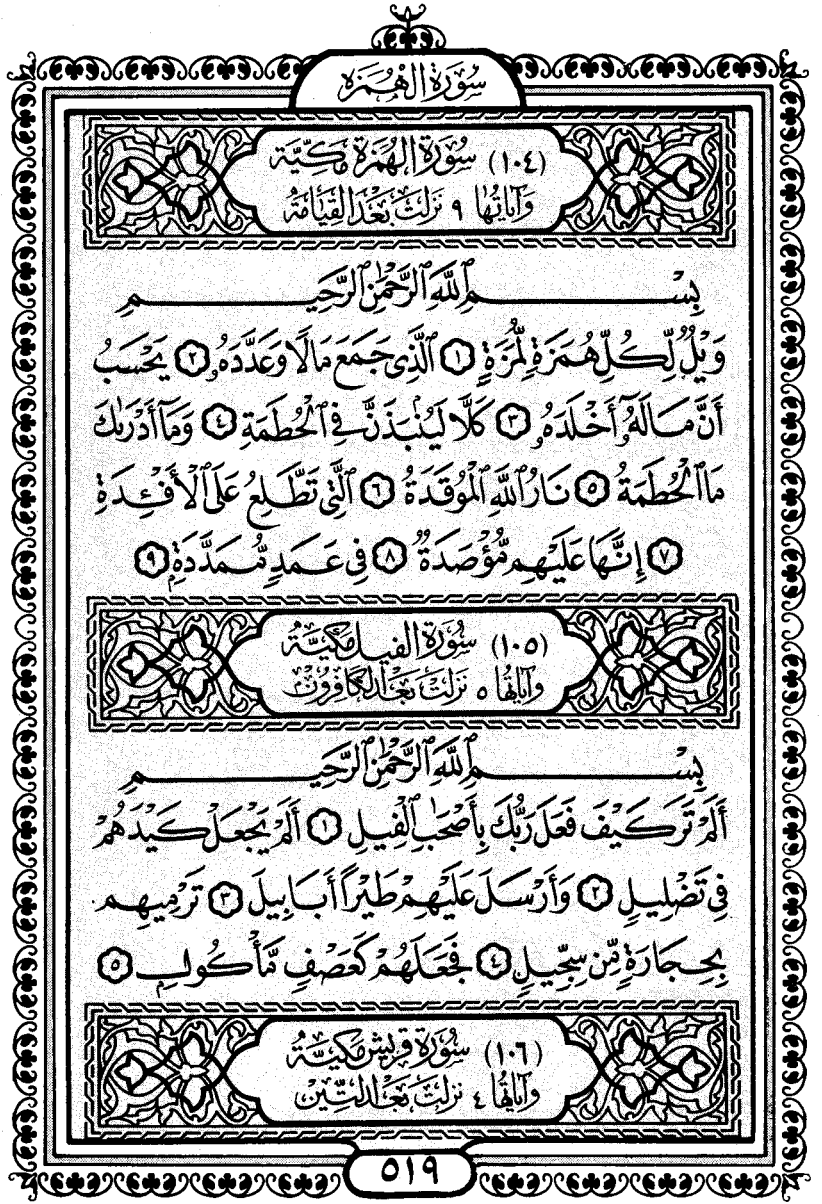 سُورَةُ الهُمَزَه
(١٠٤) سُورَةُ الهُمَزَةِ مَكِّيَّة
وَآيَاتُهَا ٩ نَزَلَتْ بَعْدَ القِيَامَةِ
بِسْمِ ٱللَّهِ ٱلرَّحْمَٰنِ ٱلرَّحِيمِ
وَيْلٌ لِّكُلِّ هُمَزَةٍ لُّمَزَةٍ ١ ٱلَّذِى جَمَعَ مَالًا وَعَدَّدَهُۥ ٢ يَحْسَبُ
أَنَّ مَالَهُۥٓ أَخْلَدَهُۥ ٣ كَلَّا لَيُنۢبَذَنَّ فِى ٱلْحُطَمَةِ ٤ وَمَآ أَدْرَىٰكَ
مَا ٱلْحُطَمَةُ ٥ نَارُ ٱللَّهِ ٱلْمُوقَدَةُ ٦ ٱلَّتِى تَطَّلِعُ عَلَى ٱلْأَفْـِٔدَةِ
٧ إِنَّهَا عَلَيْهِم مُّؤْصَدَةٌ ٨ فِى عَمَدٍ مُّمَدَّدَةٍۭ ٩
(١٠٥) سُورَةُ الفِيلِ مَكِيَّةٌ
وَآيَاتُهَا ٥ نَزَلَتْ بَعْدَ الكَافِرُونَ
بِسْمِ ٱللَّهِ ٱلرَّحْمَٰنِ ٱلرَّحِيمِ
أَلَمْ تَرَ كَيْفَ فَعَلَ رَبُّكَ بِأَصْحَٰبِ ٱلْفِيلِ ١ أَلَمْ يَجْعَلْ كَيْدَهُمْ
فِى تَضْلِيلٍ ٢ وَأَرْسَلَ عَلَيْهِمْ طَيْرًا أَبَابِيلَ ٣ تَرْمِيهِم
بِحِجَارَةٍ مِّن سِجِّيلٍ ٤ فَجَعَلَهُمْ كَعَصْفٍ مَّأْكُولٍۭ ٥
(١٠٦) سُورَةُ قُرَيْشٍ مَكِيَّةٌ
وَآيَاتُهَا ٤ نَزَلَتْ بَعْدَ التِّينِ
٥١٩